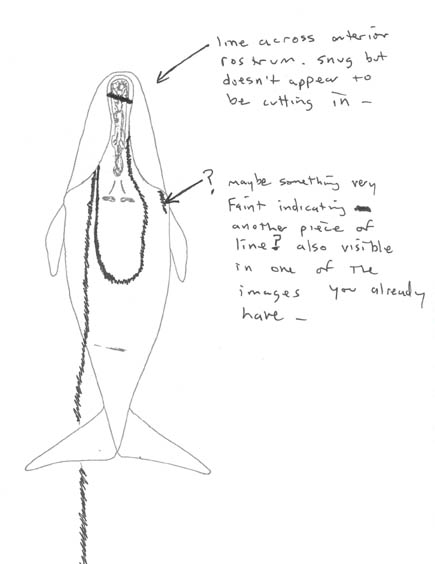 line across anterior
rostrum. snug but
doesn't appear to
be cutting in -
?
maybe something very
faint indicating
another piece of
line? also visible
in one of the
images you already
have -